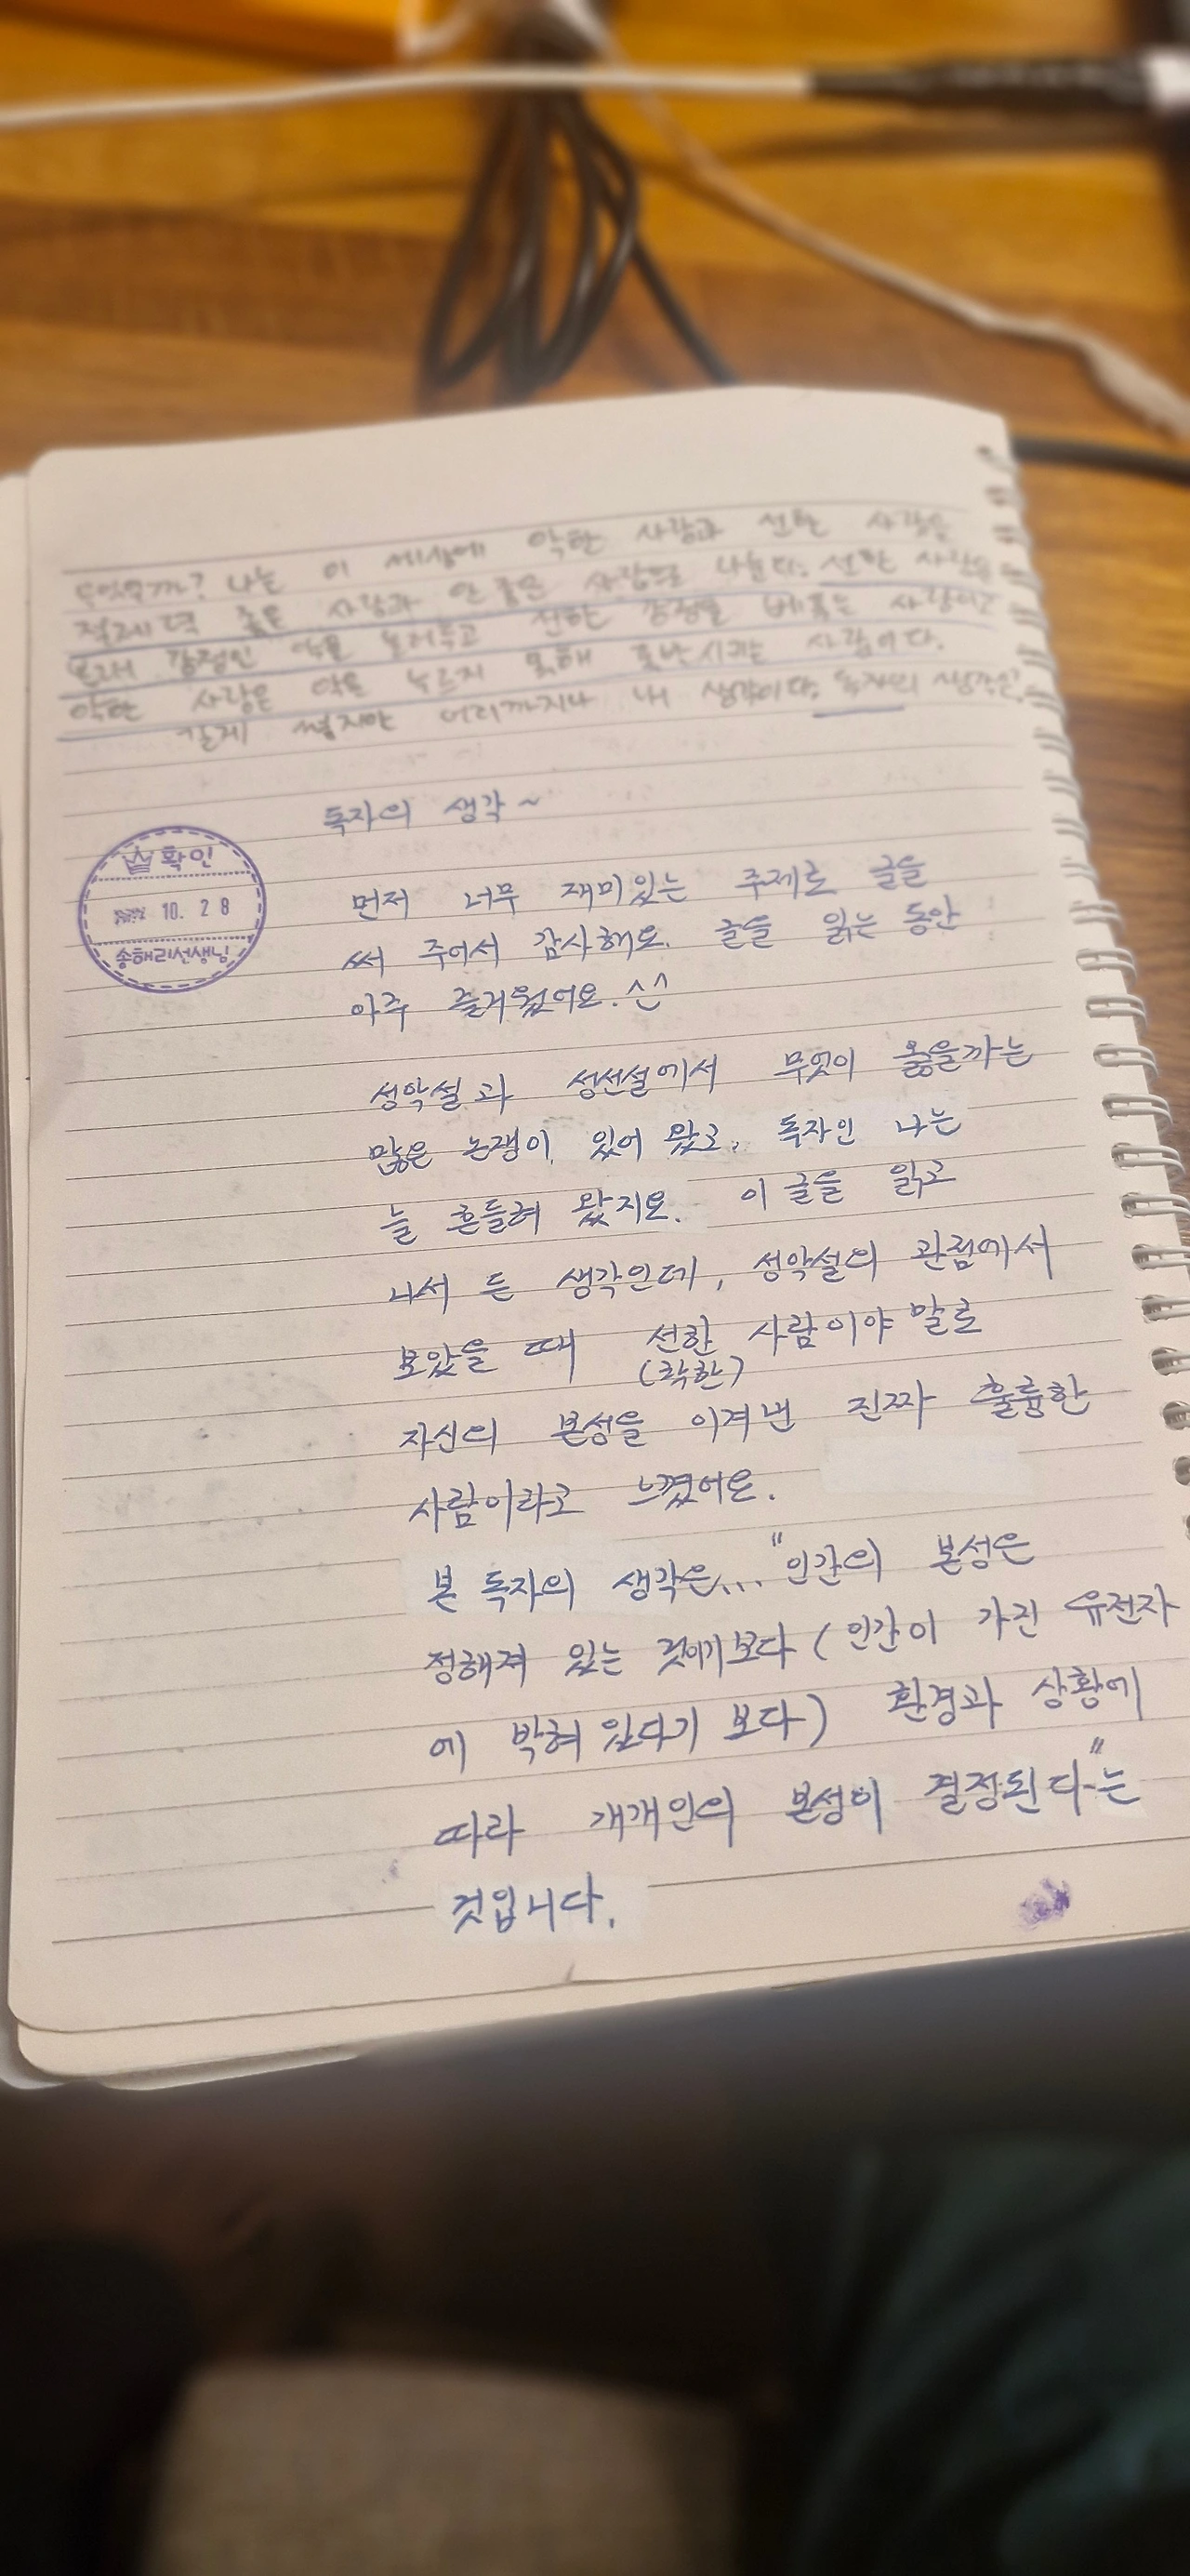 무엇일까? 나는 이 세상에 악한 사람과 선한 사람을
절대적 좋은 사람과 안 좋은 사람으로 나눈다. 선한 사람은
본래 감정인 악을 눌러두고 선한 감정을 베푸는 사람이고
악한 사람은 악을 누르지 못해 표반시키는 사람이다.
길게 썼지만 여기까지가 내 생각이다. 독자의 생각은?
독자의 생각~
확인
10. 28
송해리선생님
먼저 너무 재미있는 주제로 글을
써 주어서 감사해요. 글을 읽는 동안
아주 즐거웠어요.^^
성악설과 성선설에서 무엇이 옳을까는
많은 논쟁이 있어 왔고, 독자인 나는
늘 흔들려 왔지요. 이 글을 읽고
나서 든 생각인데, 성악설의 관점에서
보았을 때 선한 사람이야 말로
(착한)
자신의 본성을 이겨낸 진짜 훌륭한
사람이라고 느꼈어요.
본 독자의 생각은... "인간의 본성은
정해져 있는 것이기보다 (인간이 가진 유전자
에 박혀 있다기 보다) 환경과 상황에
따라 개개인의 본성이 결정된다"는
것입니다.